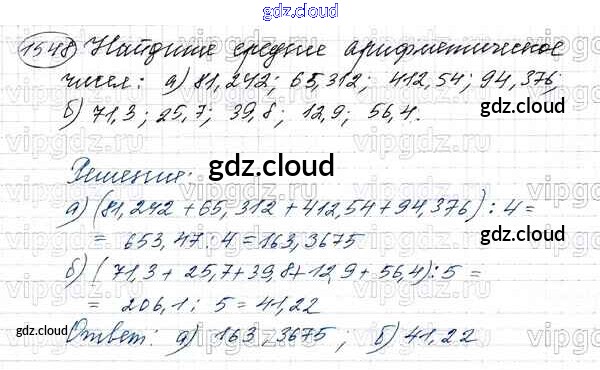 gdz.cloud
1548) Найдите среднее арифметическое
чисел: а) 81,242; 65,312; 412,54; 94,376;
б) 71,3; 25,7; 39,8; 12,9; 56,4.
gdz.cloud
Решение:
gdz.cloud
а) (81,242 + 65,312 + 412,54 + 94,376) : 4 =
= 653,47 : 4 = 163,3675
gdz.cloud
б) (71,3 + 25,7 + 39,8 + 12,9 + 56,4) : 5 =
= 206,1 : 5 = 41,22
gdz.cloud
Ответ: а) 163,3675; б) 41,22